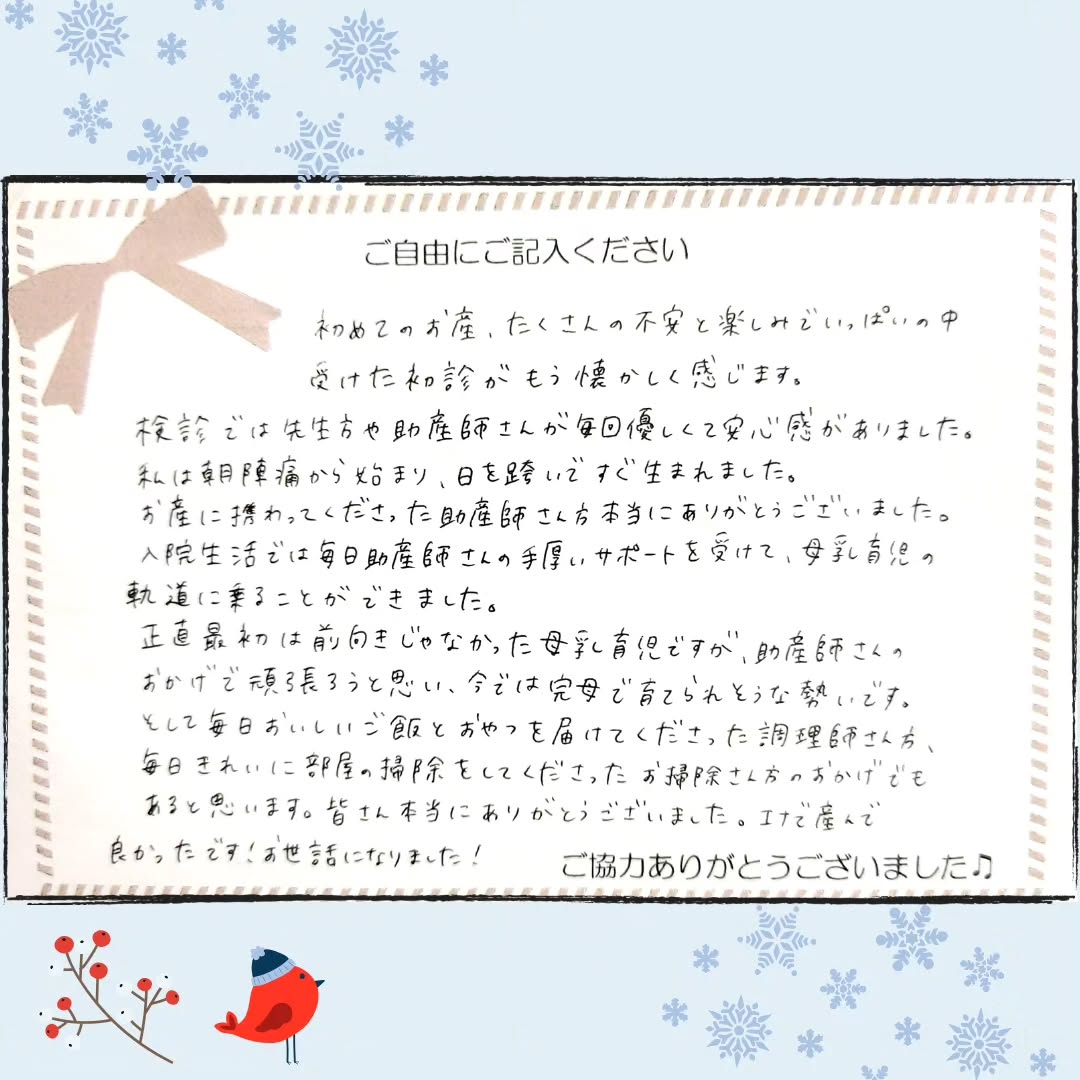 ご自由にご記入ください
初めてのお産、たくさんの不安と楽しみでいっぱいの中
受けた初診がもう懐かしく感じます。
検診では先生方や助産師さんが毎回優しくて安心感がありました。
私は朝陣痛から始まり、日を跨いですぐ生まれました。
お産に携わってくださった助産師さん方本当にありがとうございました。
入院生活では毎日助産師さんの手厚いサポートを受けて、母乳育児の
軌道に乗ることができました。
正直最初は前向きじゃなかった母乳育児ですが、助産師さんの
おかげで頑張ろうと思い、今では完母で育てられそうな勢いです。
そして毎日おいしいご飯とおやつを届けてくださった調理師さん方、
毎日きれいに部屋の掃除をしてくださったお掃除さん方のおかげでも
あると思います。皆さん本当にありがとうございました。エナで産んで
良かったです!お世話になりました!
ご協力ありがとうございました♫